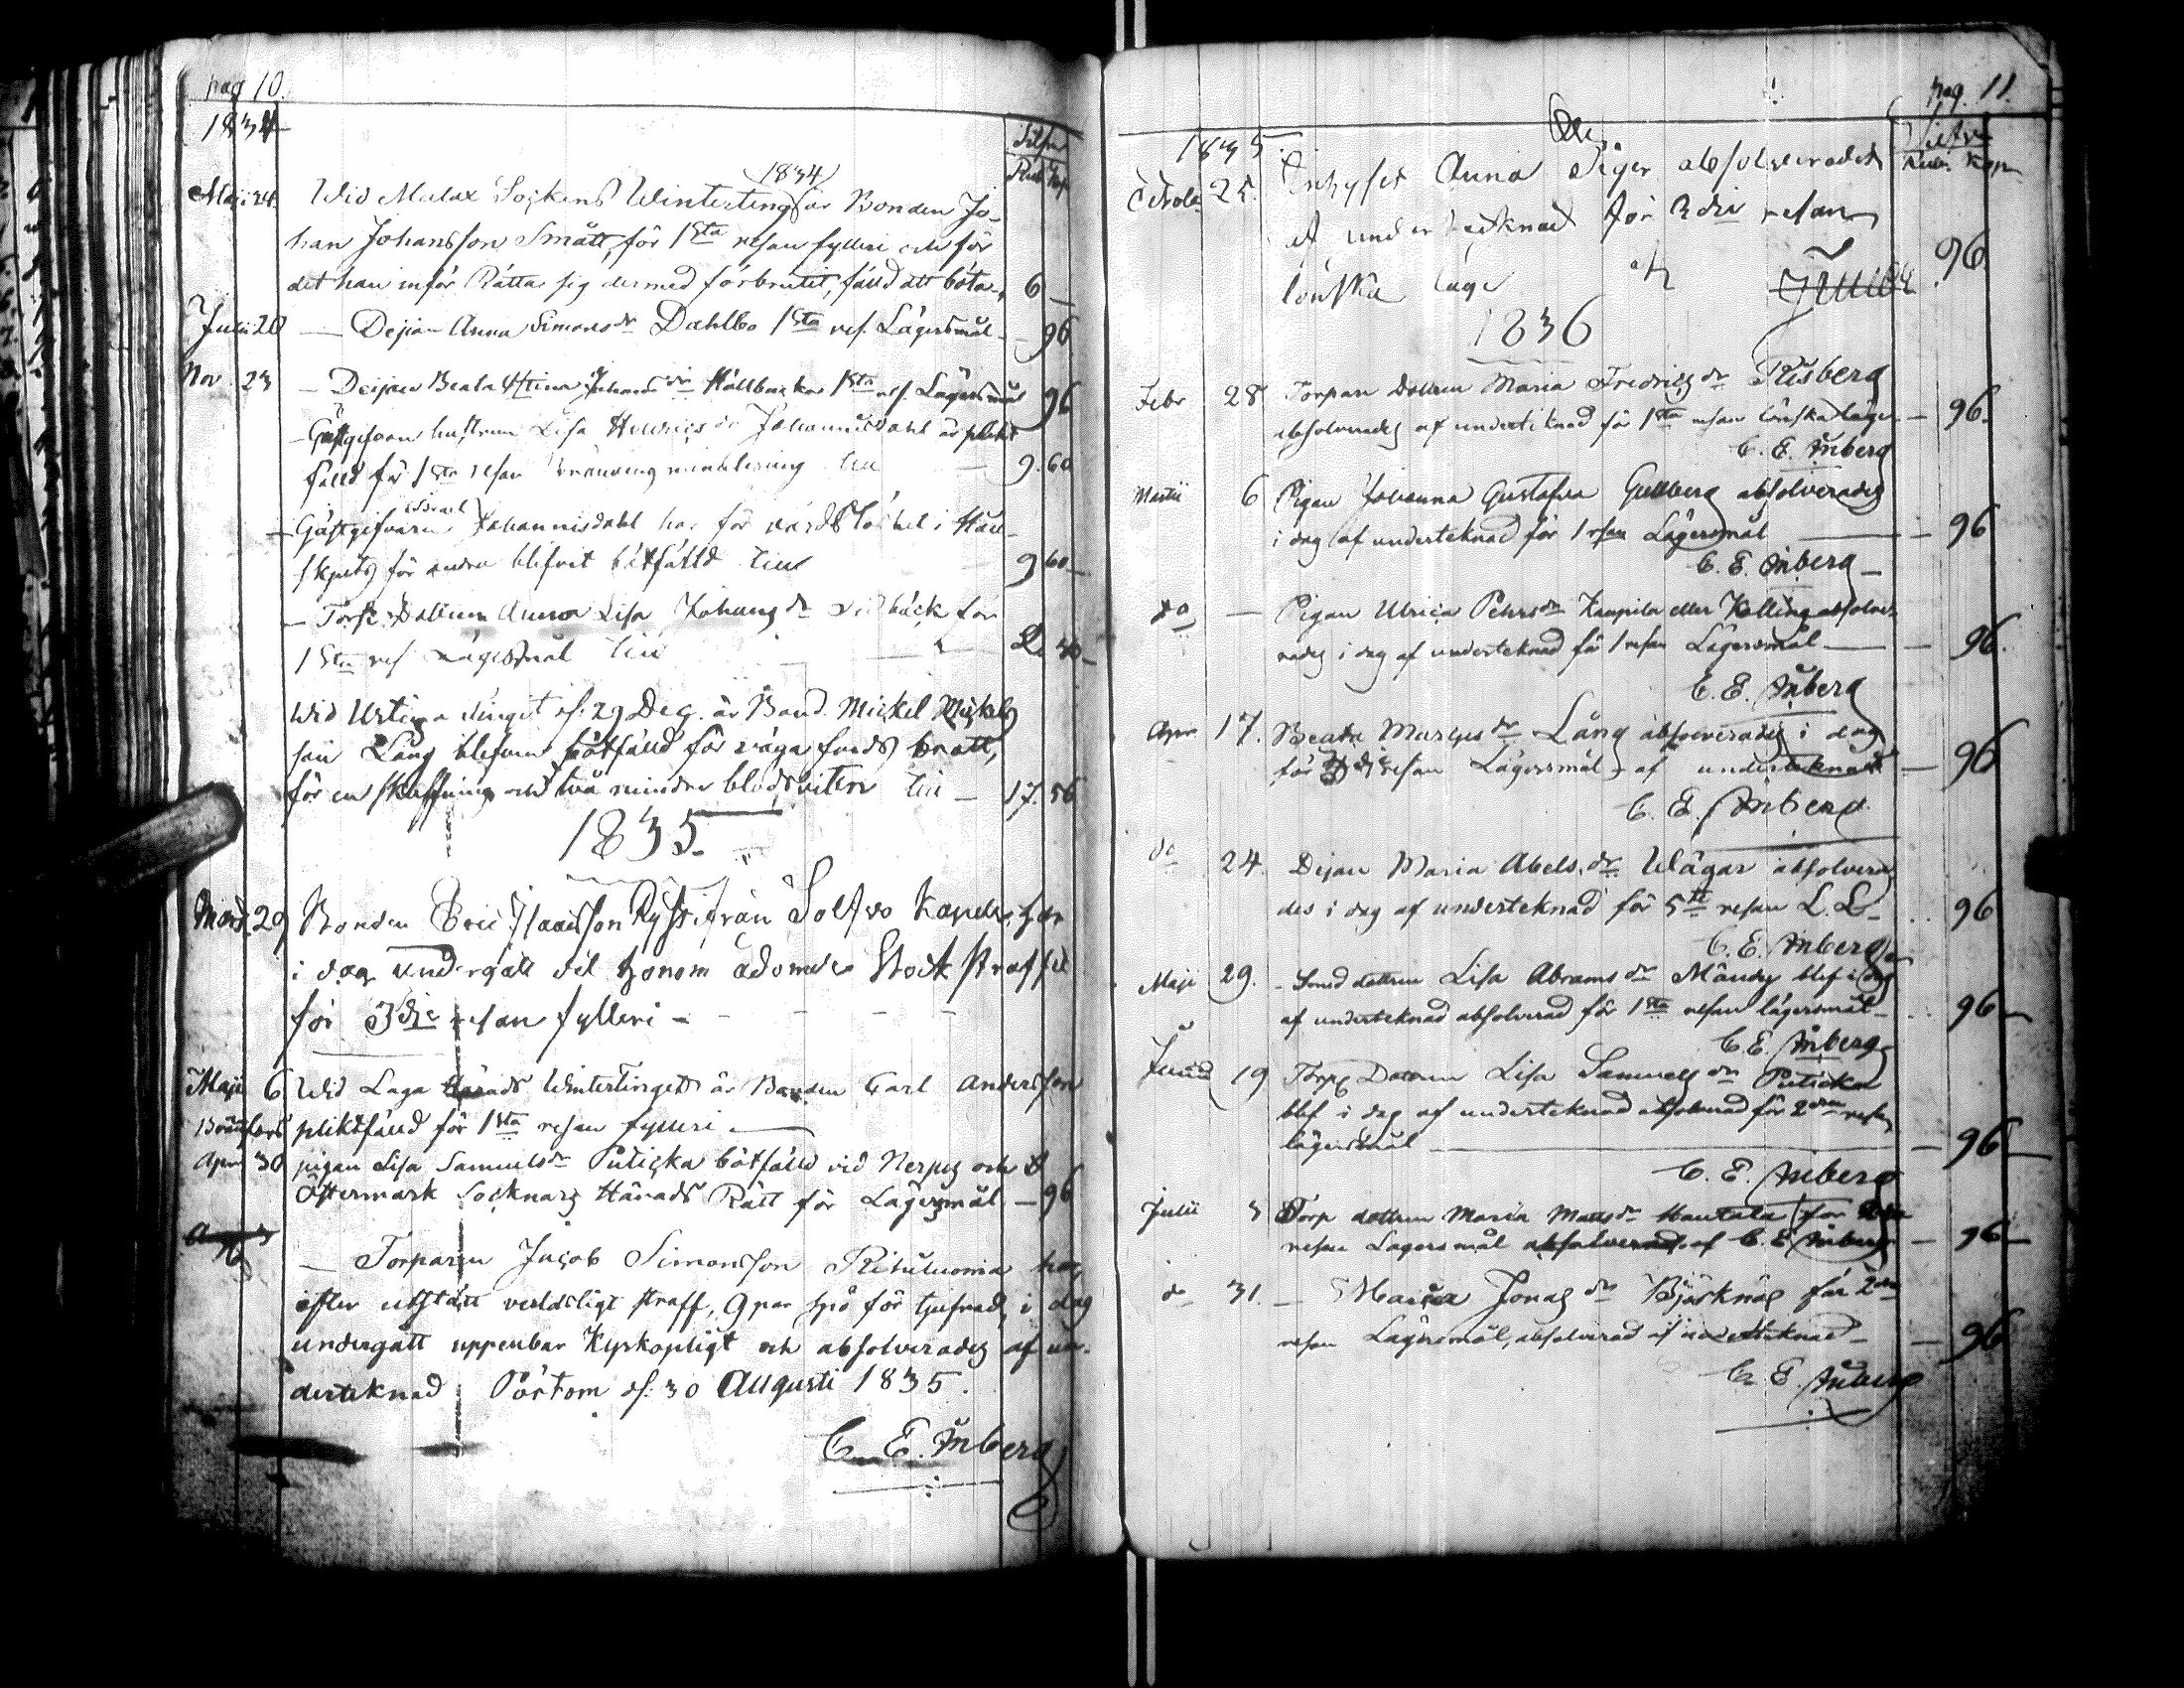 pag 10.
1834
Silfver
Rub. Kop.
1834
Maji 24. Wid Malax Sockens Winterting är Bonden Jo-
han Johansson Smått, för 1sta resan fylleri och för
det han inför Rätta sig dermed förbrutit, fälld att böta 6 —
Juli 20 — Dejan Anna Simonsdr Dahlbo 1sta res. Lägersmål — 96
Nov. 23 — Deijan Beata Stina Johansdr Källbacka 1sta res. Lägersmål 96
— Gästgifvare hustrun Lisa Henricsdr Johannisdahl är
fälld för 1sta resan till — 9. 60
Israel
— Gästgifvaren Johannisdahl har för i Håll-
skjuts för andra blifvit bötfälld till 9 60 —
— Torp. Dottren Anna Lisa Johansdr för
1sta res. Lägersmål till
Wid Urtima tinget d. 29 Dec. är Bond. Mickel Mickels
son Lång blefven bötfälld för våga fords bratt,
för en skuffning och två mindre blodsviten till — 17. 56
1835.
Mart. 29 Bonden Eric Isaacsson Rysti från Solf Kapell, har
i dag undergått det honom ådömda Stockstraffet
för 3die resan fylleri - - - - -
Maji 6. Wid Laga Härads Wintertinget är Bonden Carl Andersson
pliktfälld för 1sta resan fylleri —
Apr. 30 pigan Lisa Samuelsdr Puticka bötfälld vid Nerpes och
Östermark Socknars Härads Rätt för Lägersmål — 96
— Torparen Jacob Simonsson har,
efter utstått verldsligt straff, 9 par spö för tjufnad, i dag
undergått uppenbar Kyrkopligt och absolverades af un-
derteknad Pörtom d. 30 Augusti 1835.
C. E. Inberg
pag. 11.
1835.
Silfver
Rub. Kop.
Octob. 25. Inhyses Anna Siger absolverades
af underteknad för 3die resan
lönska läge 96.
1836
Febr 28 Torpare Dottren Maria Fredricsdr Risberg
absolverades af underteknad för 1sta resan lönskaläge — 96.
C. E. Inberg
Martii 6 Pigan Johanna Gustafva Gullberg absolverades
i dag af underteknad för 1 resan Lägersmål — 96
C. E. Inberg —
do — Pigan Ulrica Pehrsdr Kaupila eller Källing absolve-
rades i dag af underteknad för 1 resan Lägersmål — 96.
C. E. Inberg
Apr. 17. Beata Marcusdr Lång absolverades i dag
för resan Lägersmål af underteknad — 96
C. E. Inberg
do 24. Dejan Maria Abelsdr Wägar absolvera
des i dag af underteknad för 5te resan L. L. .. 96
C. E. Inberg
Maji 29. - Smed dottren Lisa Abramsdr Mändy blef i dag
af underteknad absolverad för 1sta resan lägersmål — 96 —
C. E. Inberg
Junii 19 Torp. Dottren Lisa Samuelsdr Puticka
blef i dag af underteknad absolverad för 2dra resan
lägersmål — 96 —
C. E. Inberg
Julii 3 Torp dottren Maria Mattsdr Hautala för
resan Lägersmål absolverad af C. E. Inberg — 96 —
do 31. — Maria Jonasdr Björknäs för 2dra
resan Lägersmål, absolverad af underteknad — 96
C. E. Inberg